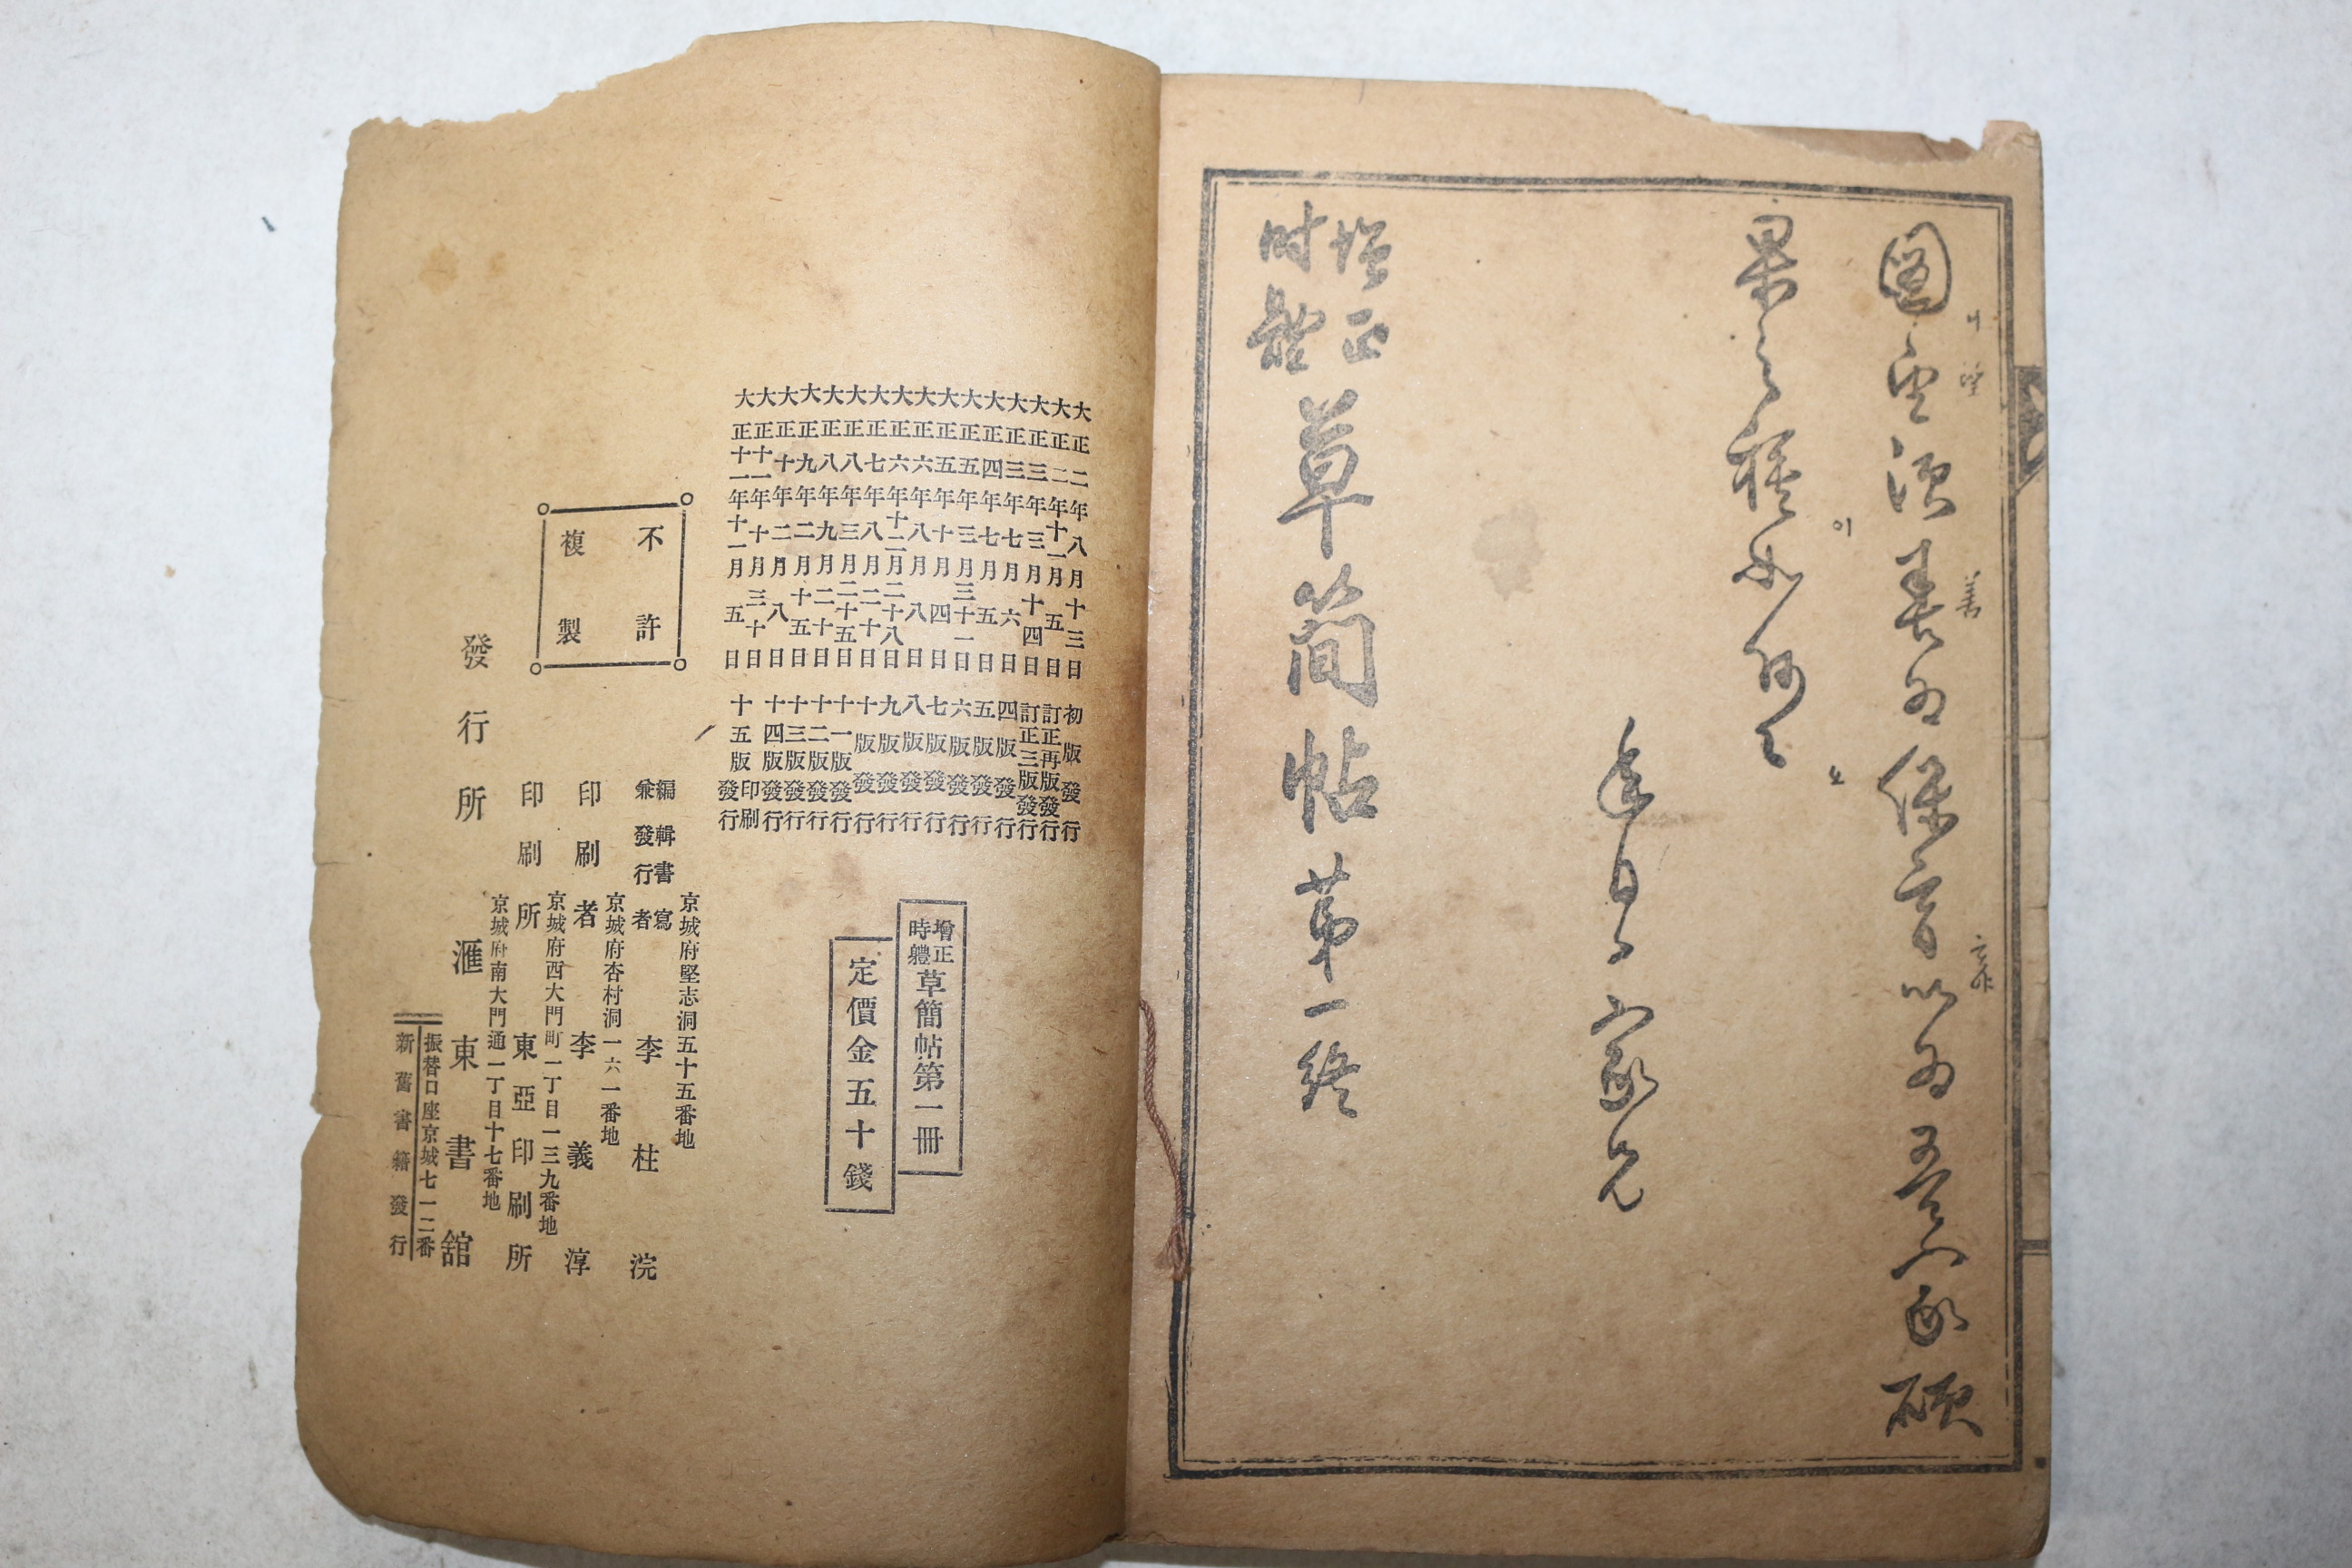 圖望須善爲保育以爲吾家碩
望
善
果之種如何
이
오
年月日 家兄
增正
時體
草簡帖第一終
大正二年八月十三日 初版發行
大正二年十一月五日 訂正再版發行
大正三年三月十四日 訂正三版發行
大正三年七月六日 四版發行
大正四年七月五日 五版發行
大正五年三月三十一日 六版發行
大正五年十月四日 七版發行
大正六年八月八日 八版發行
大正六年十二月二十八日 九版發行
大正七年八月二十日 十版發行
大正八年三月二十五日 十一版發行
大正八年九月二十日 十二版發行
大正九年二月十五日 十三版發行
大正十年二月八日 十四版發行
大正十一年十月三十日 印刷
大正十一年十一月五日 十五版發行
增正
時體
草簡帖第一冊
定價金五十錢
不許
複製
京城府堅志洞五十五番地
編輯書寫
兼發行者 李柱浣
京城府杏村洞一六一番地
印刷者 李義淳
京城府西大門町一丁目一三九番地
印刷所 東亞印刷所
京城府南大門通一丁目十七番地
發行所 滙東書舘
振替口座京城七一二番
新舊書籍發行